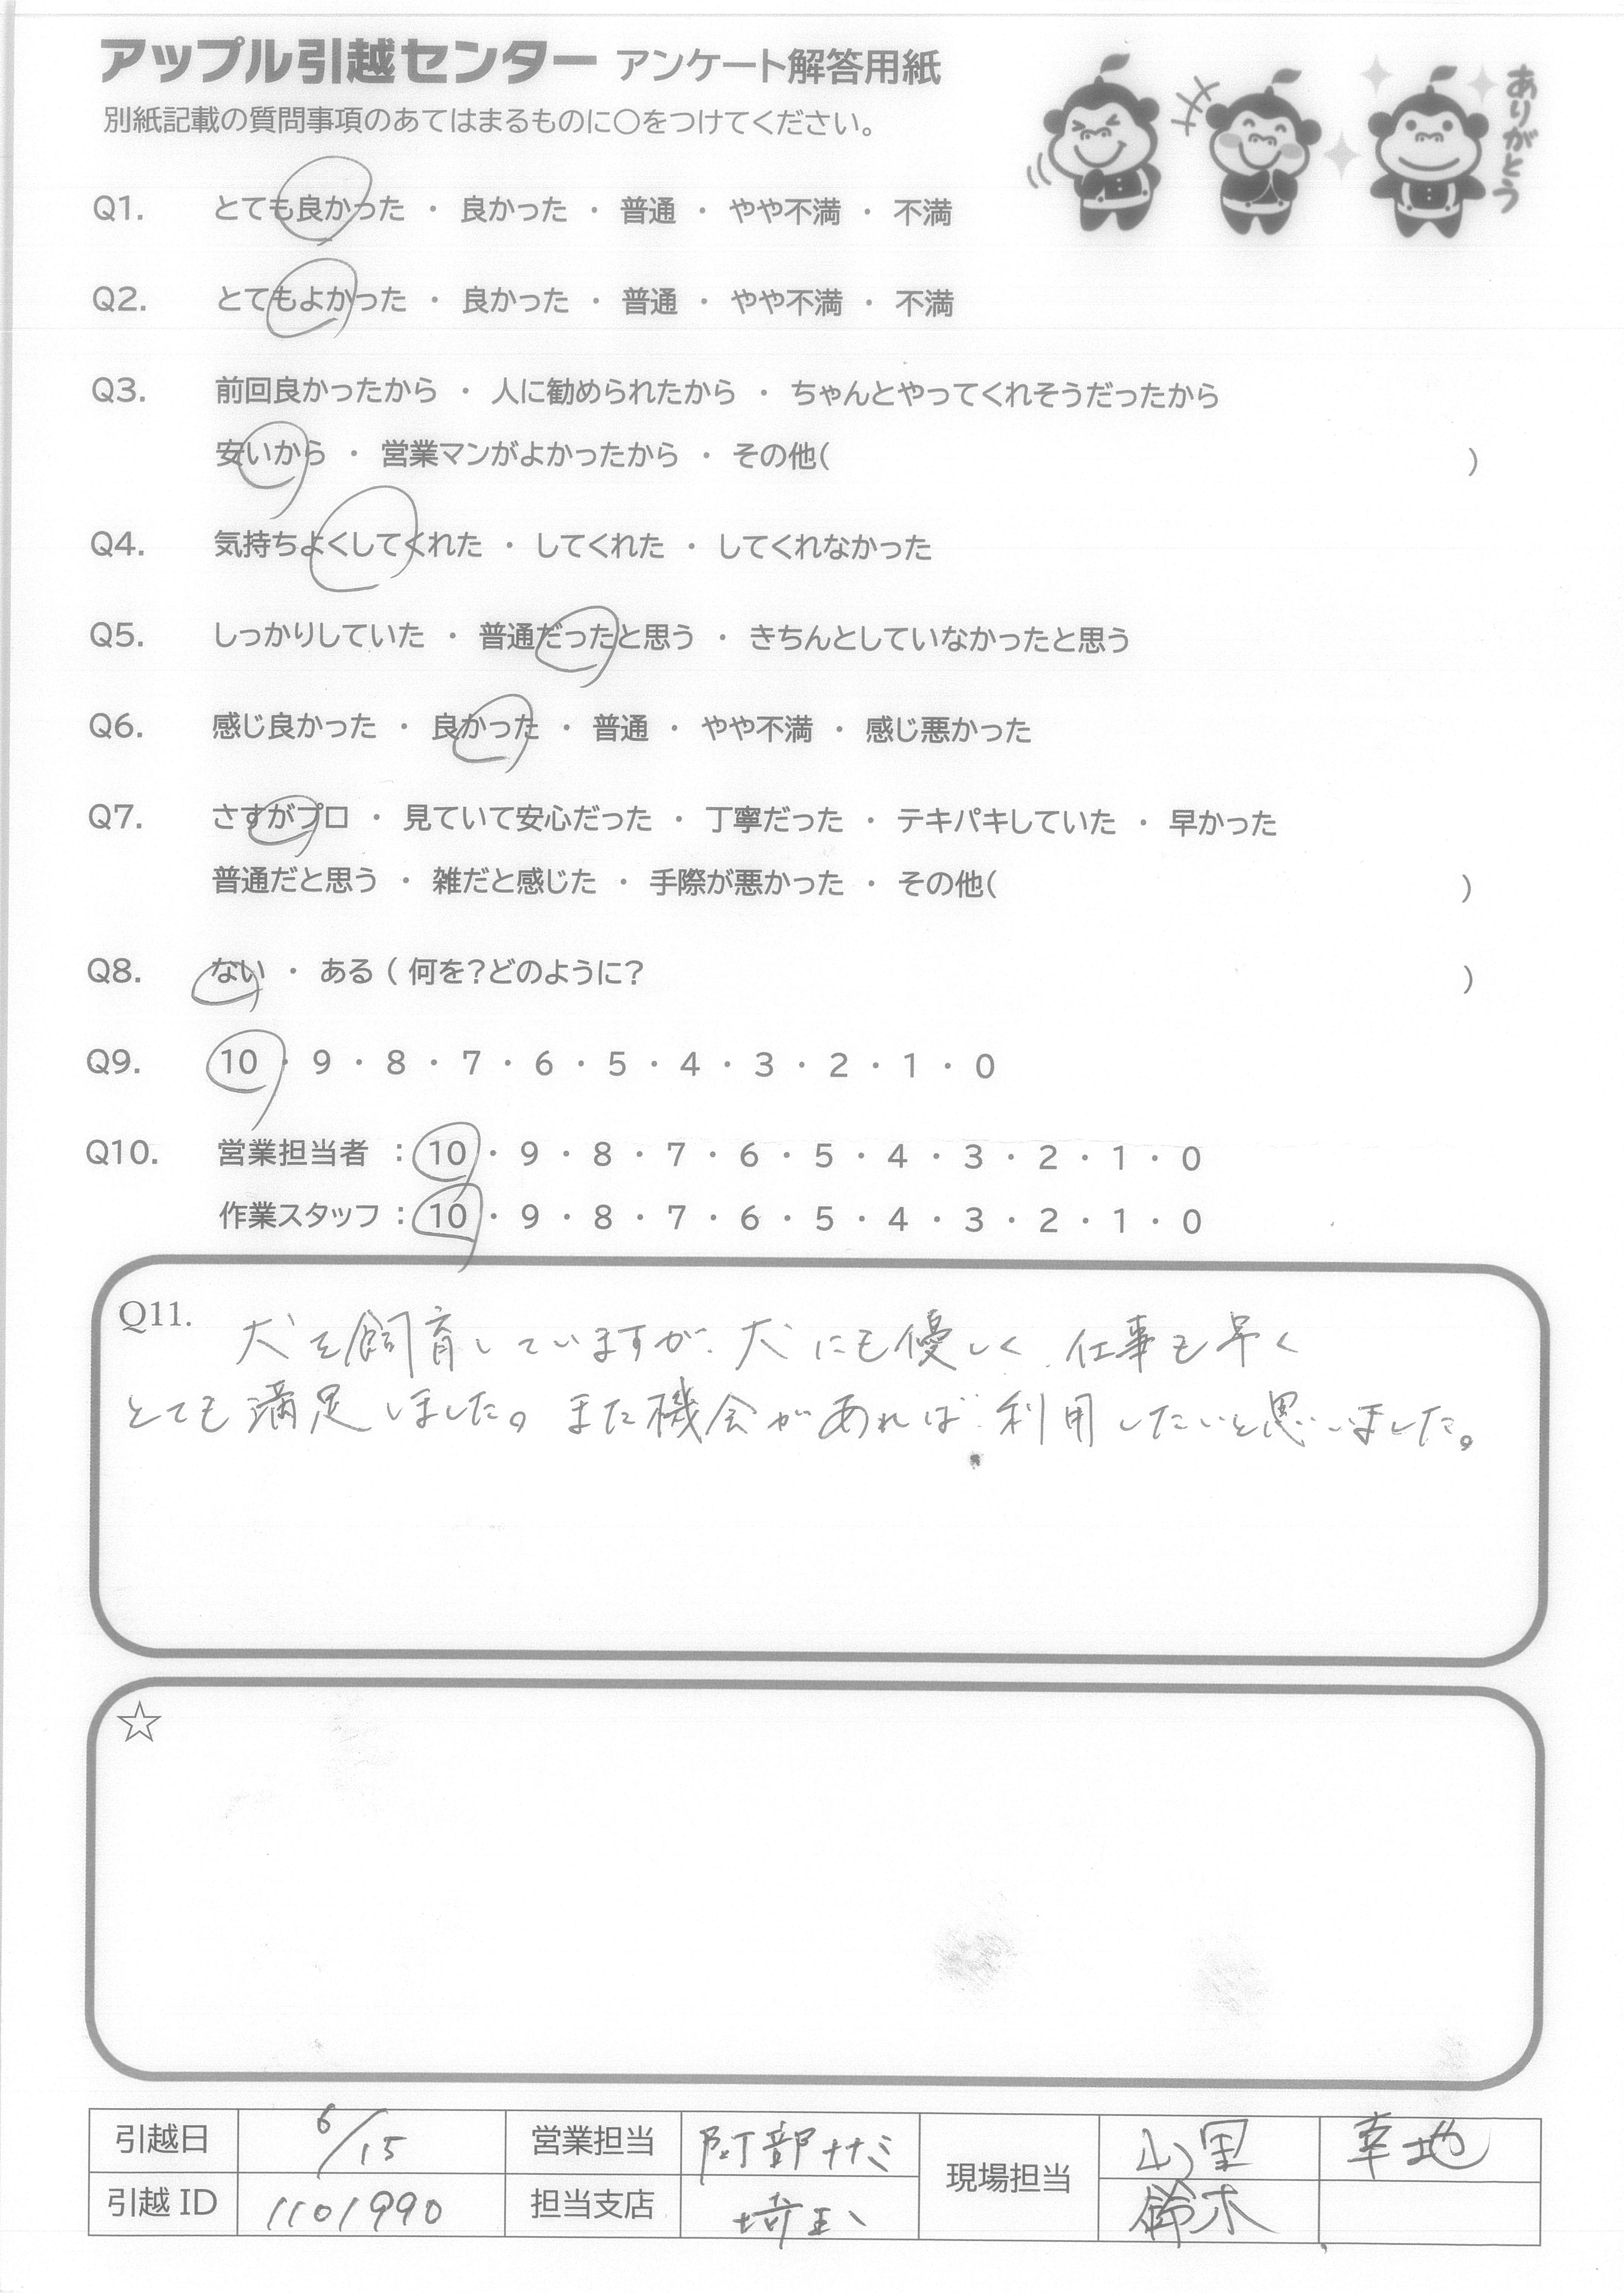 アップル引越センター アンケート解答用紙
別紙記載の質問事項のあてはまるものに○をつけてください。
ありがとう
Q1. とても良かった ・ 良かった ・ 普通 ・ やや不満 ・ 不満
Q2. とてもよかった ・ 良かった ・ 普通 ・ やや不満 ・ 不満
Q3. 前回良かったから ・ 人に勧められたから ・ ちゃんとやってくれそうだったから
安いから ・ 営業マンがよかったから ・ その他( )
Q4. 気持ちよくしてくれた ・ してくれた ・ してくれなかった
Q5. しっかりしていた ・ 普通だったと思う ・ きちんとしていなかったと思う
Q6. 感じ良かった ・ 良かった ・ 普通 ・ やや不満 ・ 感じ悪かった
Q7. さすがプロ ・ 見ていて安心だった ・ 丁寧だった ・ テキパキしていた ・ 早かった
普通だと思う ・ 雑だと感じた ・ 手際が悪かった ・ その他( )
Q8. ない ・ ある ( 何を?どのように? )
Q9. 10 ・ 9 ・ 8 ・ 7 ・ 6 ・ 5 ・ 4 ・ 3 ・ 2 ・ 1 ・ 0
Q10. 営業担当者 : 10 ・ 9 ・ 8 ・ 7 ・ 6 ・ 5 ・ 4 ・ 3 ・ 2 ・ 1 ・ 0
作業スタッフ : 10 ・ 9 ・ 8 ・ 7 ・ 6 ・ 5 ・ 4 ・ 3 ・ 2 ・ 1 ・ 0
Q11. 犬を飼育していますが、犬にも優しく、仕事も早く
とても満足しました。また機会があれば利用したいと思いました。
☆
引越日 6/15 営業担当 阿部ナナミ 現場担当 山里 幸地
引越 ID 1101990 担当支店 埼玉 鈴木